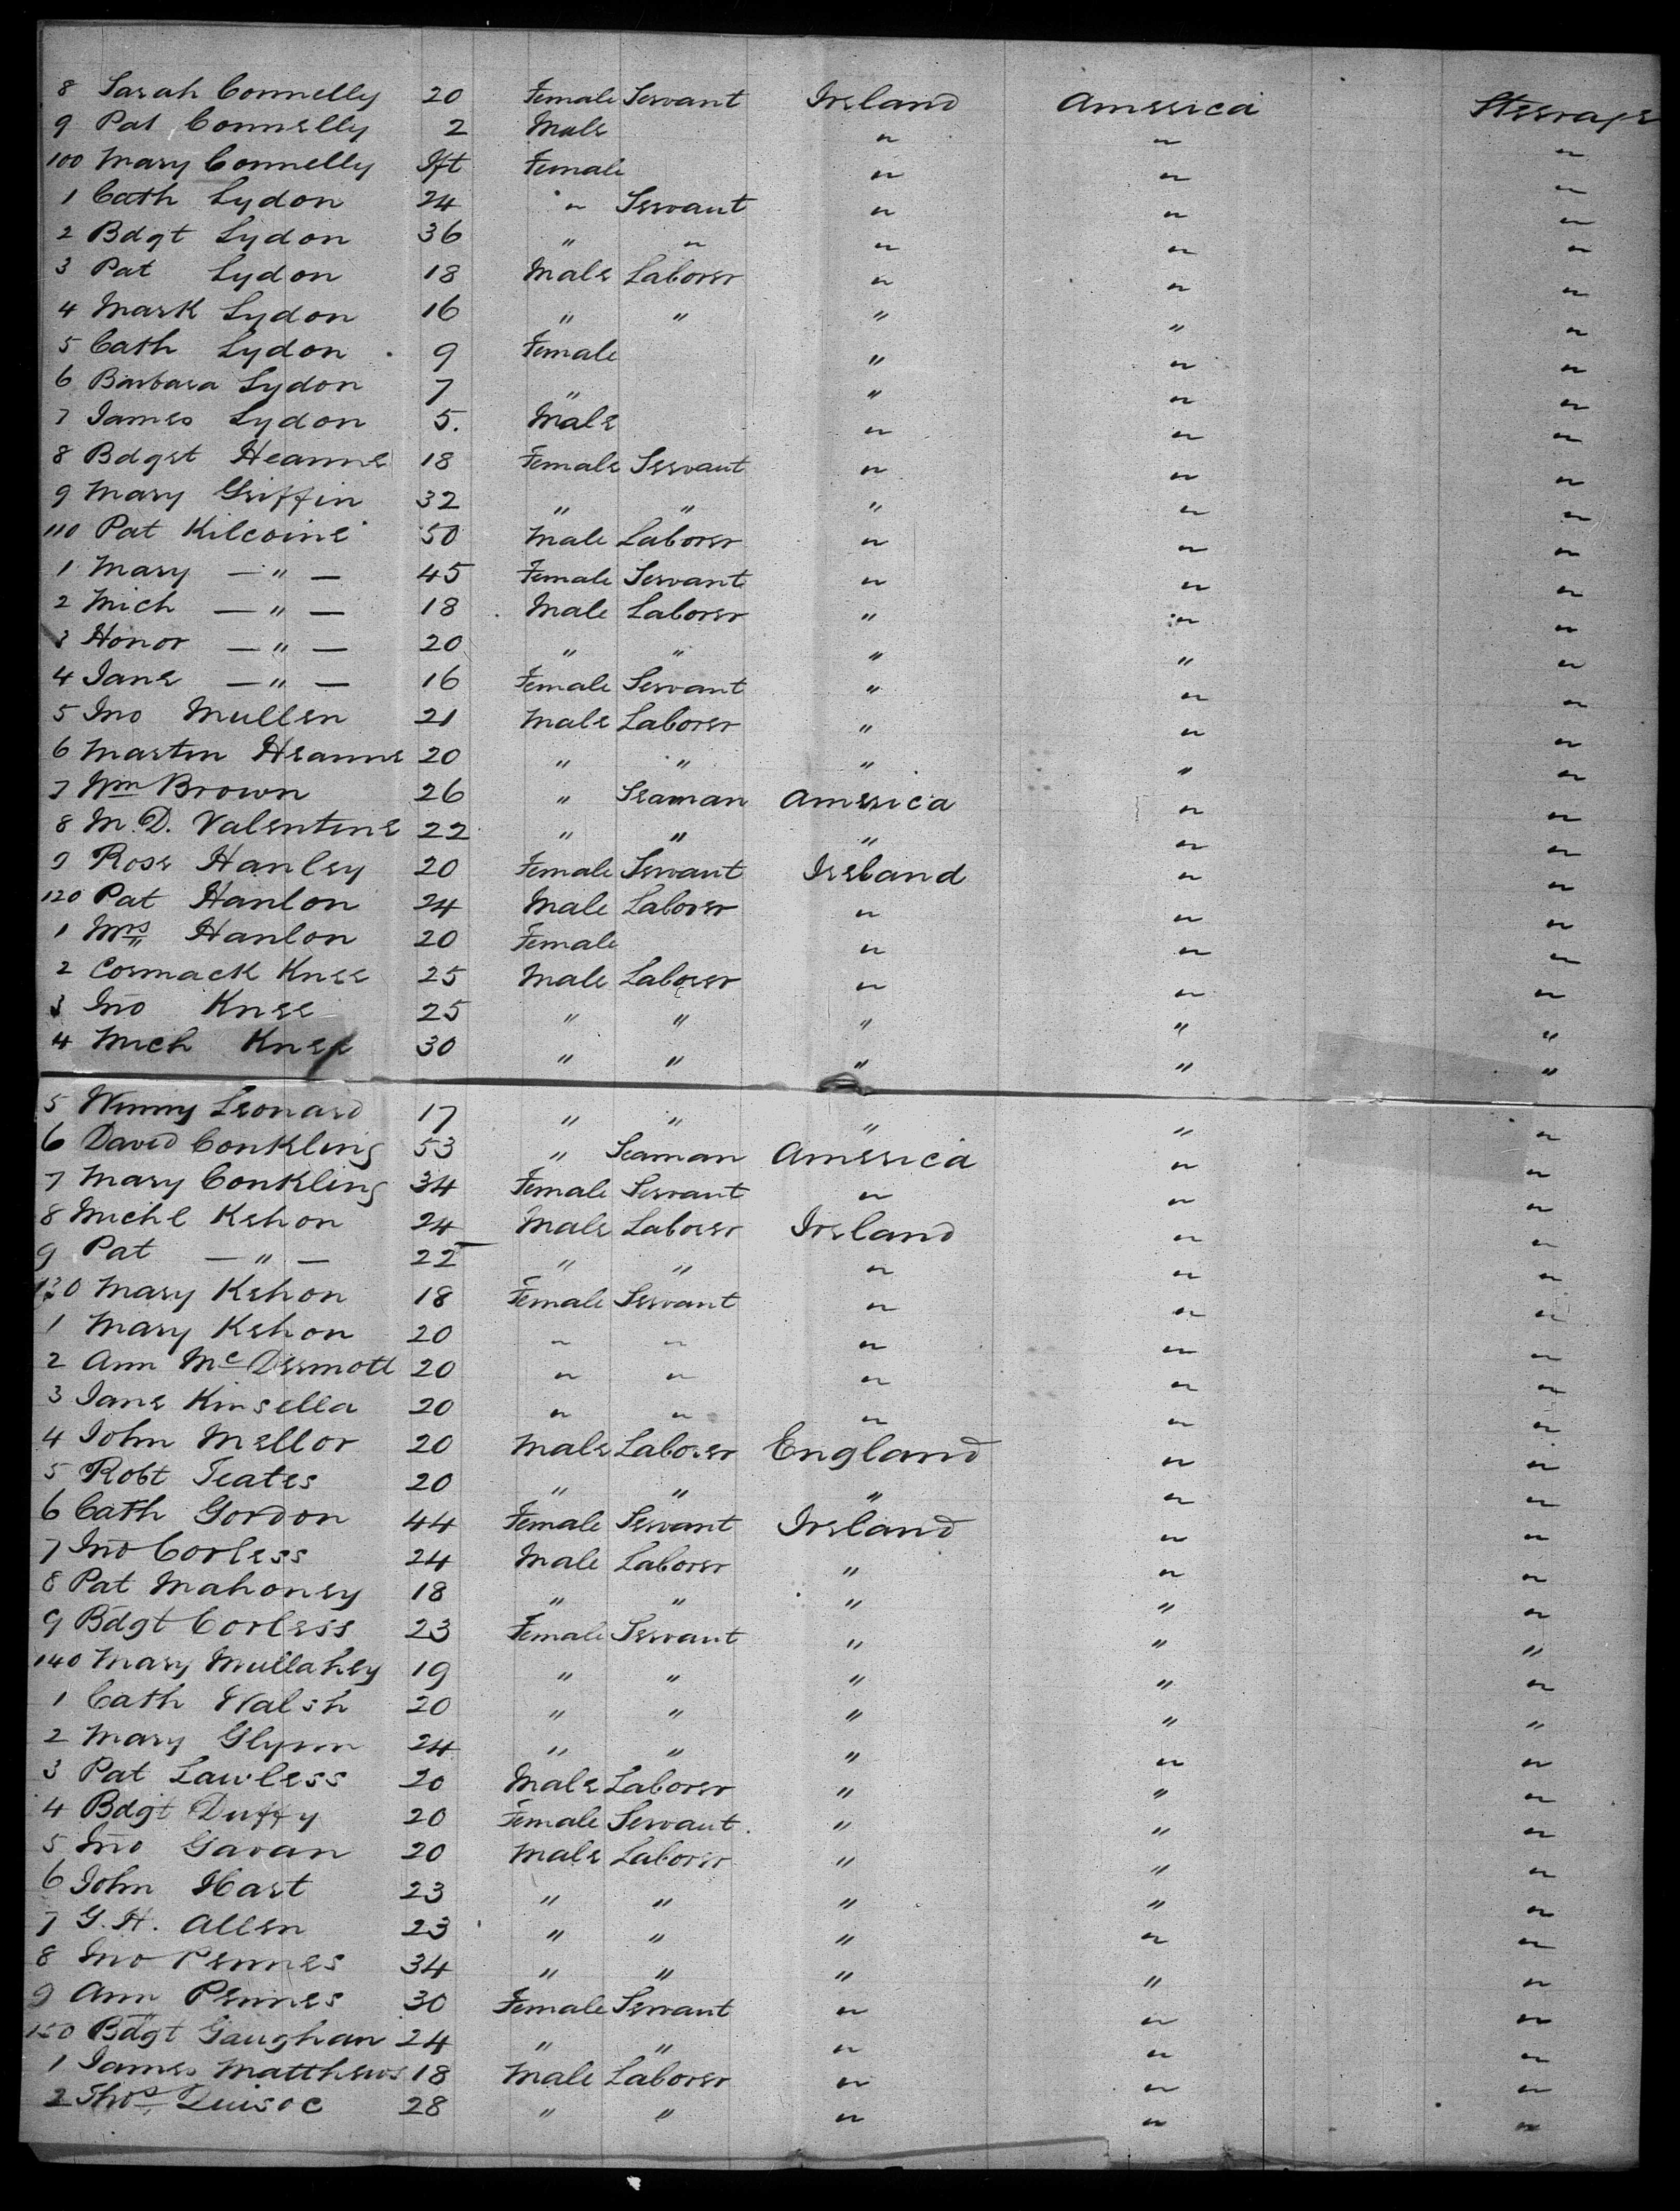 8 Sarah Connelly 20 Female Servant Ireland America Steerage
9 Pat Connelly 2 Male " " "
100 Mary Connelly Ift Female " " "
1 Cath Lydon 24 " Servant " " "
2 Bdgt Lydon 36 " " " " "
3 Pat Lydon 18 Male Laborer " " "
4 Mark Lydon 16 " " " " "
5 Cath Lydon 9 Female " " "
6 Barbara Lydon 7 " " " "
7 James Lydon 5. Male " " "
8 Bdget Heanne 18 Female Servant " " "
9 Mary Griffin 32 " " " " "
110 Pat Kilcoine 50 Male Laborer " " "
1 Mary — " — 45 Female Servant " " "
2 Mich — " — 18 Male Laborer " " "
3 Honor — " — 20 " " " " "
4 Jane — " — 16 Female Servant " " "
5 Jno Mullen 21 Male Laborer " " "
6 Martin Heanne 20 " " " " "
7 Wm Brown 26 " Seaman America " "
8 M. D. Valentine 22 " " " " "
9 Rose Hanley 20 Female Servant Ireland " "
120 Pat Hanlon 24 Male Laborer " " "
1 Mrs Hanlon 20 Female " " "
2 Cormack Knee 25 Male Laborer " " "
3 Jno Knee 25 " " " " "
4 Mich Knee 30 " " " " "
5 Winny Leonard 17 " " " " "
6 David Conkling 53 " Seaman America " "
7 Mary Conkling 34 Female Servant " " "
8 Michl Kehon 24 Male Laborer Ireland " "
9 Pat — " — 22 " " " " "
130 Mary Kehon 18 Female Servant " " "
1 Mary Kehon 20 " " " " "
2 Ann McDermott 20 " " " " "
3 Jane Kinsella 20 " " " " "
4 John Mellor 20 Male Laborer England " "
5 Robt Teates 20 " " " " "
6 Cath Gordon 44 Female Servant Ireland " "
7 Jno Corless 24 Male Laborer " " "
8 Pat Mahoney 18 " " " " "
9 Bdgt Corless 23 Female Servant " " "
140 Mary Mullahey 19 " " " " "
1 Cath Walsh 20 " " " " "
2 Mary Glynn 24 " " " " "
3 Pat Lawless 20 Male Laborer " " "
4 Bdgt Duffy 20 Female Servant " " "
5 Jno Gavan 20 Male Laborer " " "
6 John Hart 23 " " " " "
7 G. H. Allen 23 " " " " "
8 Jno Pennes 34 " " " " "
9 Ann Pennes 30 Female Servant " " "
150 Bdgt Gaughan 24 " " " " "
1 James Matthews 18 Male Laborer " " "
2 Thos 28 " " " " "